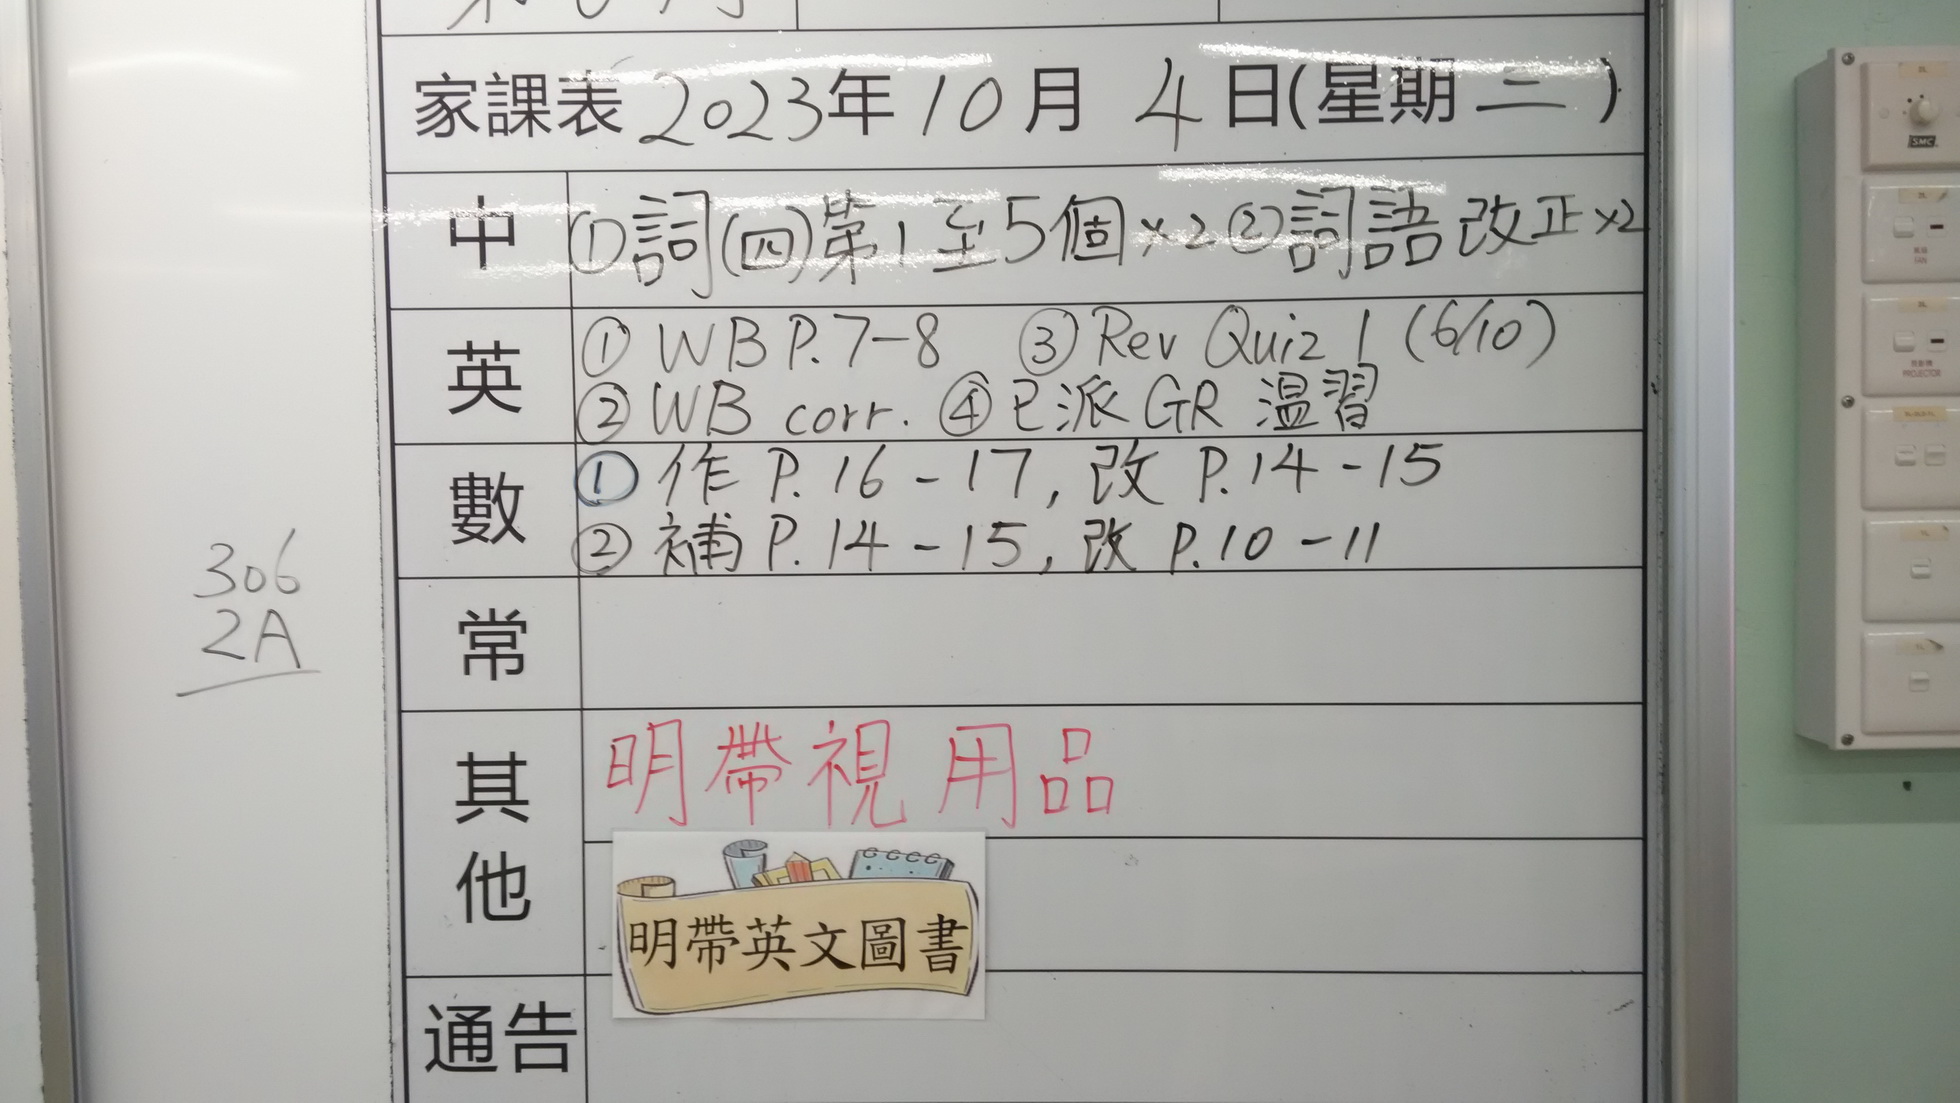 家課表 2023年 10月 4日(星期三)
中 ①詞(四)第1至5個×2 ②詞語改正×2
英 ① WB P.7-8 ③ Rev Quiz 1 (6/10)
② WB corr. ④ 已派GR 温習
數 ① 作 P.16-17, 改 P.14-15
② 補 P.14-15, 改 P.10-11
306
2A
常
其他
明帶視用品
明帶英文圖書
通告
SMC
PROJECTOR